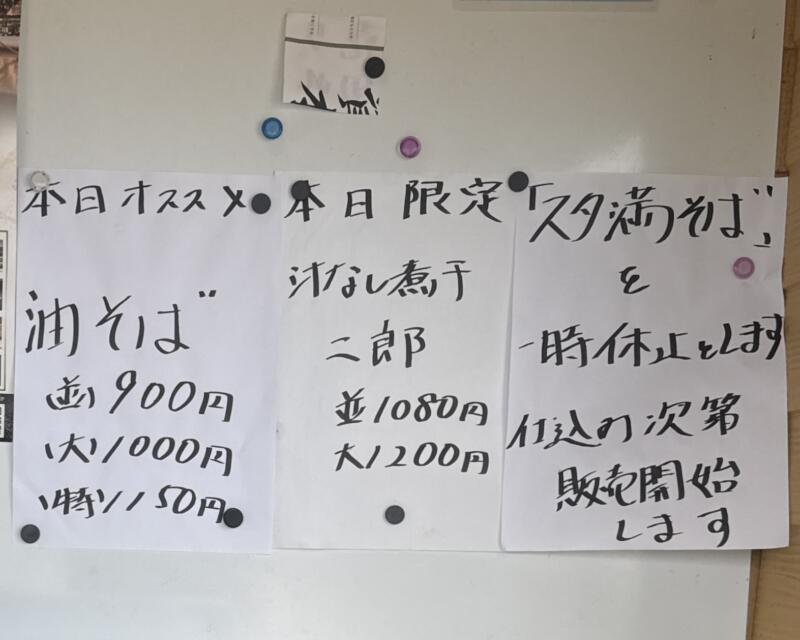 本日オススメ
油そば
(並)900円
(大)1000円
(特)1150円
本日限定
汁なし煮干
二郎
並1080円
大1200円
「スタ満そば」
を
一時休止とします
仕込み次第
販売開始
します